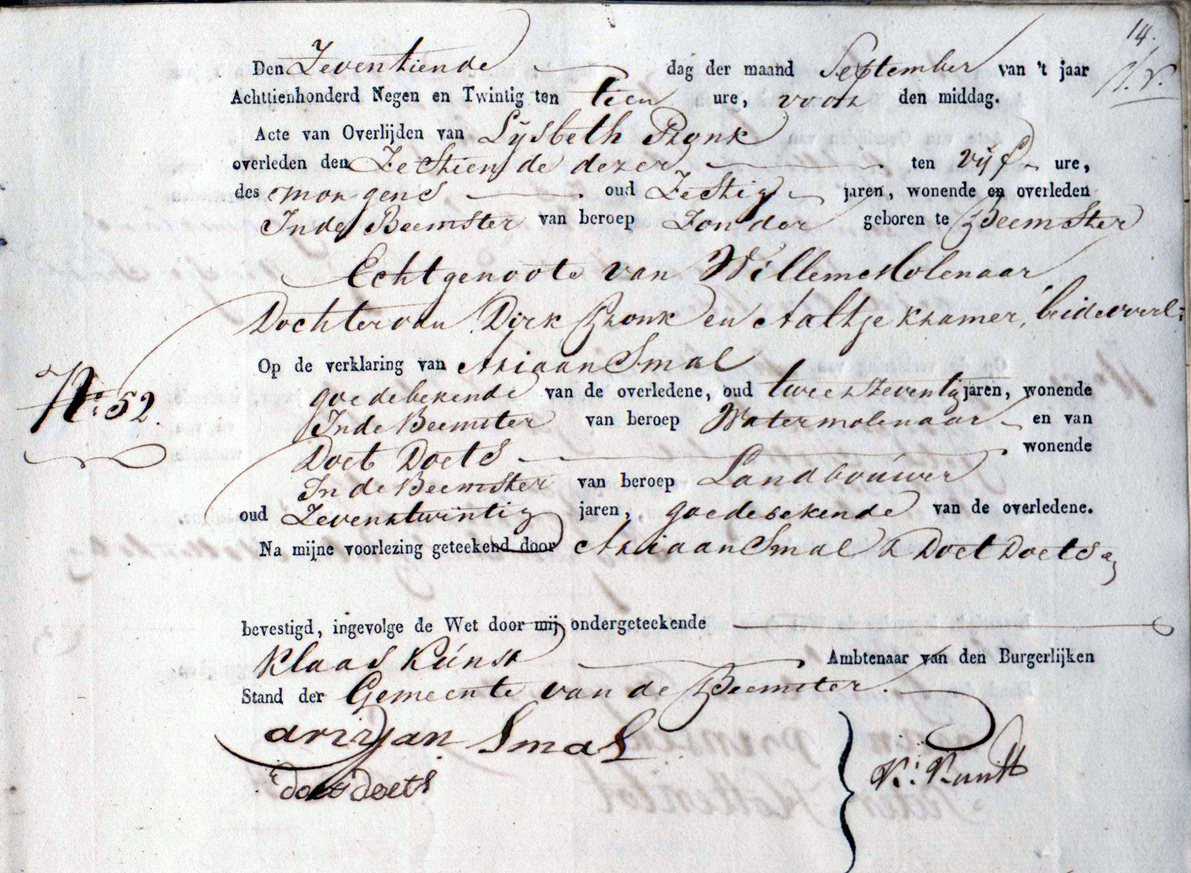 14.
Den Zeventiende dag der maand September van 't jaar
Achttienhonderd Negen en Twintig ten tien ure, voor den middag.
Acte van Overlijden van Lijsbeth Bronk
overleden den Zestiende dezer ten vijf ure,
des morgens oud Zestig jaren, wonende en overleden
In de Beemster van beroep Zonder geboren te Beemster
Echtgenoote van Willem Molenaar
Dochter van Dirk Bronk en Aaltje Kramer, beide overl:
Op de verklaring van Ariaan Smal
goedebekende van de overledene, oud twee & zeventig jaren, wonende
In de Beemster van beroep Watermolenaar en van
No. 52
Doet Doets wonende
In de Beemster van beroep Landbouwer
oud Zeven & twintig jaren, goedebekende van de overledene.
Na mijne voorlezing geteekend door Ariaan Smal & Doet Doets
bevestigd, ingevolge de Wet door mij ondergeteekende
Klaas Kunst Ambtenaar van den Burgerlijken
Stand der Gemeente van de Beemster.
ariyan Smal
doet doets
K: Kunst